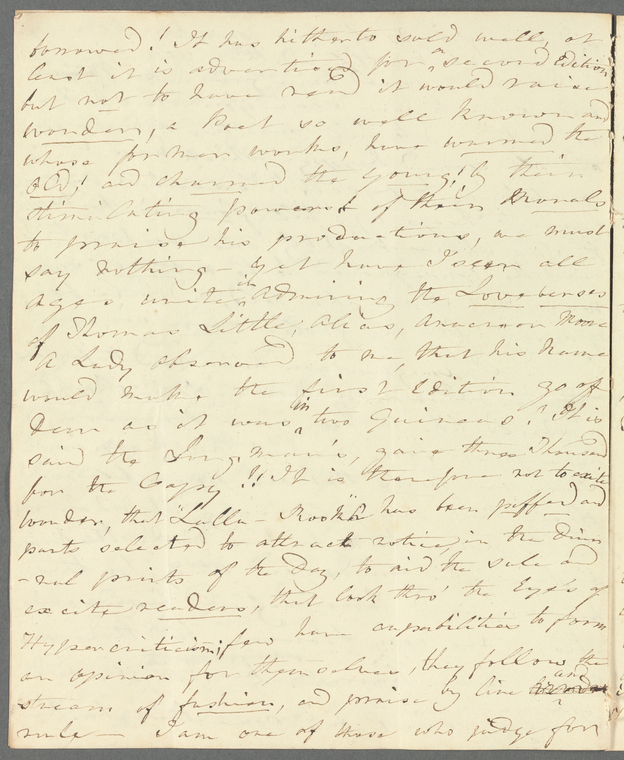 borrowed! It has hitherto sold well, at
least it is advertised for a second Edition
but not to have read it would raise
wonder, a Poet so well known and
whose former works, have warmed the
Old! and charmed the young! by their
stimulating powers & of their Morals
to praise his productions, we must
say nothing - yet have I seen all
Ages unite in Admiring the Love verses
of Thomas Little, alias, Anacreon Moore
A Lady observed to me, that his Name
would make the first Edition go off
Dear as it was in two Guineas! It is
said the Longman's, gave three Thousand
for the Copy!! It is therefore not to excite
wonder, that "Lalla-Rookh" has been puffed and
parts selected to attract notice, in the diur
-nal prints of the Day, to aid the sale and
excite readers, that look thro' the Eyes of
Hypercriticism; few have capabilities to form
an opinion for themselves, they follow the
stream of fashion, and praise by line and
rule - I am one of those who judge for